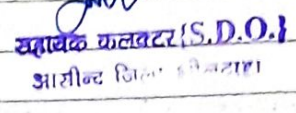 सहायक कलक्टर {S.D.O.}
आसीन्द जिला